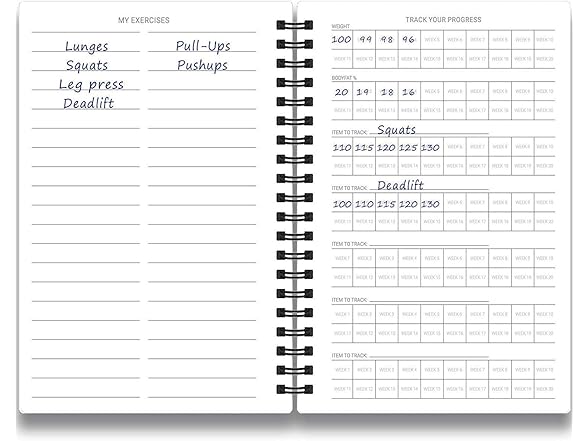 MY EXERCISES
Lunges
Squats
Leg press
Deadlift
Pull-Ups
Pushups
TRACK YOUR PROGRESS
WEIGHT
100 99 98 96 WEEK 5 WEEK 6 WEEK 7 WEEK 8 WEEK 9 WEEK 10
WEEK 11 WEEK 12 WEEK 13 WEEK 14 WEEK 15 WEEK 16 WEEK 17 WEEK 18 WEEK 19 WEEK 20
BODYFAT %
20 19 18 16 WEEK 5 WEEK 6 WEEK 7 WEEK 8 WEEK 9 WEEK 10
WEEK 11 WEEK 12 WEEK 13 WEEK 14 WEEK 15 WEEK 16 WEEK 17 WEEK 18 WEEK 19 WEEK 20
ITEM TO TRACK: Squats
110 115 120 125 130 WEEK 6 WEEK 7 WEEK 8 WEEK 9 WEEK 10
WEEK 11 WEEK 12 WEEK 13 WEEK 14 WEEK 15 WEEK 16 WEEK 17 WEEK 18 WEEK 19 WEEK 20
ITEM TO TRACK: Deadlift
100 110 115 120 130 WEEK 6 WEEK 7 WEEK 8 WEEK 9 WEEK 10
WEEK 11 WEEK 12 WEEK 13 WEEK 14 WEEK 15 WEEK 16 WEEK 17 WEEK 18 WEEK 19 WEEK 20
ITEM TO TRACK:
WEEK 1 WEEK 2 WEEK 3 WEEK 4 WEEK 5 WEEK 6 WEEK 7 WEEK 8 WEEK 9 WEEK 10
WEEK 11 WEEK 12 WEEK 13 WEEK 14 WEEK 15 WEEK 16 WEEK 17 WEEK 18 WEEK 19 WEEK 20
ITEM TO TRACK:
WEEK 1 WEEK 2 WEEK 3 WEEK 4 WEEK 5 WEEK 6 WEEK 7 WEEK 8 WEEK 9 WEEK 10
WEEK 11 WEEK 12 WEEK 13 WEEK 14 WEEK 15 WEEK 16 WEEK 17 WEEK 18 WEEK 19 WEEK 20
ITEM TO TRACK:
WEEK 1 WEEK 2 WEEK 3 WEEK 4 WEEK 5 WEEK 6 WEEK 7 WEEK 8 WEEK 9 WEEK 10
WEEK 11 WEEK 12 WEEK 13 WEEK 14 WEEK 15 WEEK 16 WEEK 17 WEEK 18 WEEK 19 WEEK 20